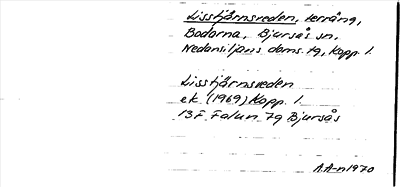 Lisstjärnsreden, terräng,
Bodarna, Bjursås sn,
Nedansiljans doms. tg, Kopp. l.
Lisstjärnsreden
ek. (1969) Kopp. l.
13F Falun 7g Bjursås
A.A-n 1970